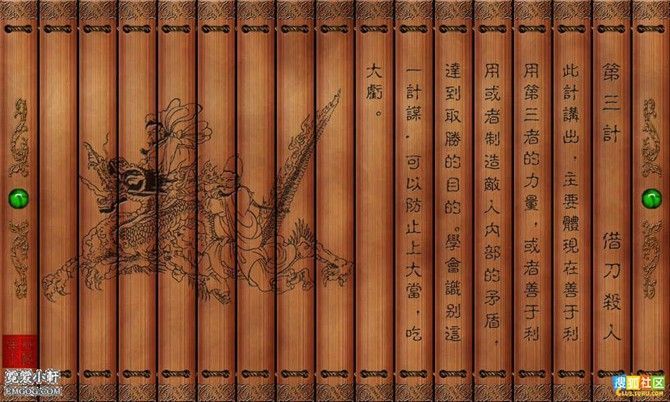 第三計 借刀殺人
此計講出，主要體現在善于利
用第三者的力量，或者善于利
用或者制造敵人内部的矛盾，
達到取勝的目的。學會識别這
一計謀，可以防止上大當，吃
大虧。
霓裳小軒
EMGOG.COM
搜狐社区
CLUB.SOHU.COM